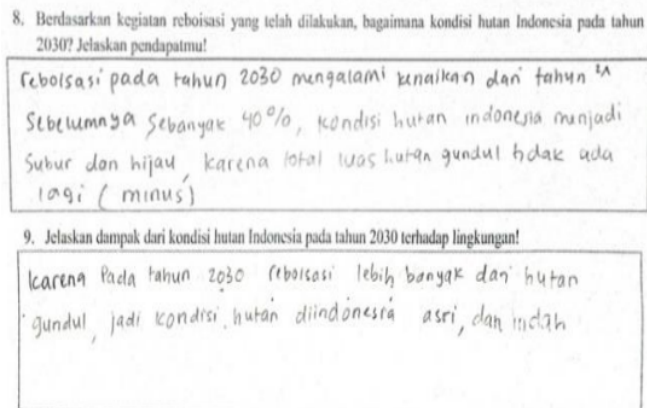 8. Berdasarkan kegiatan reboisasi yang telah dilakukan, bagaimana kondisi hutan Indonesia pada tahun
2030? Jelaskan pendapatmu!
reboisasi pada tahun 2030 mengalami kenaikan dari tahun 2^
Sebelumnya sebanyak 40%, kondisi hutan indonesia menjadi
Subur dan hijau, karena total luas hutan gundul tidak ada
lagi (minus)
9. Jelaskan dampak dari kondisi hutan Indonesia pada tahun 2030 terhadap lingkungan!
karena Pada tahun 2030 reboisasi lebih banyak dari hutan
gundul, jadi kondisi hutan diindonesia asri, dan indah